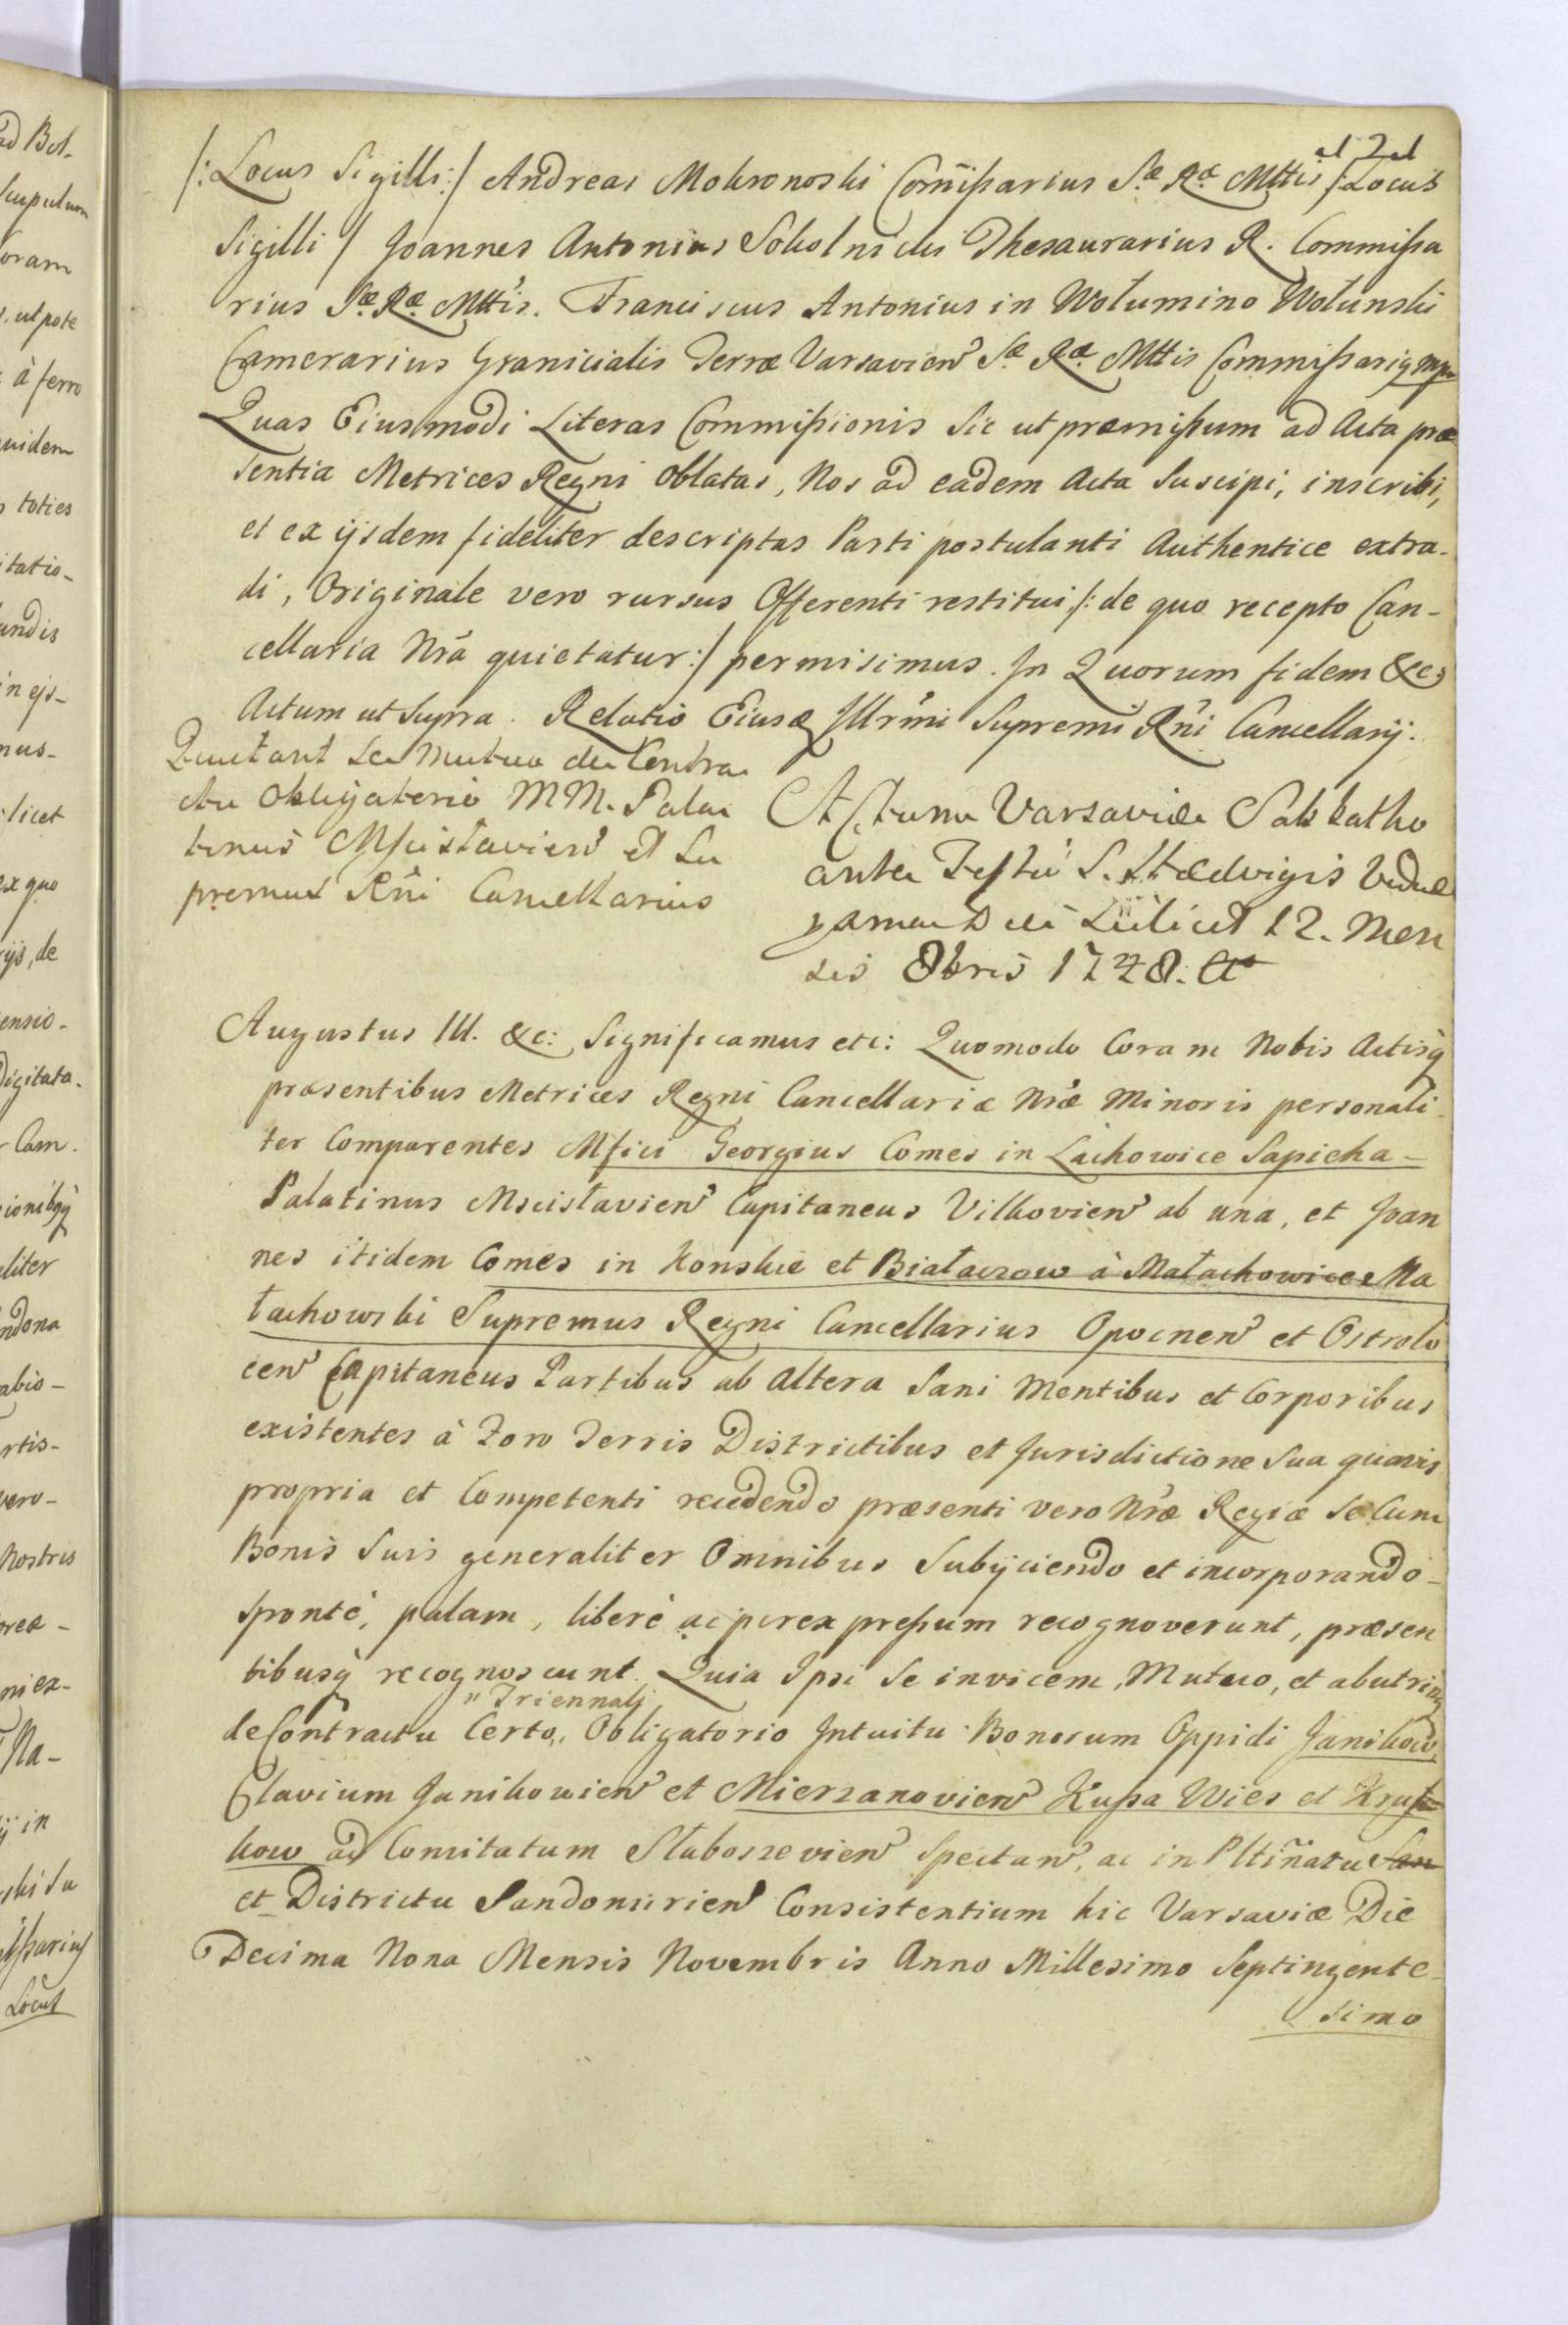 /: Locus Sigilli :/ Andreas Mokronoski Com̃ißarius Sæ Ræ Mttis /: Locus
Sigilli / Joannes Antonius Sokolnicki Thesaurarius R. Commißa
rius Sæ Ræ Mttis. Franciscus Antonius in Wołumino Wołunski
Camerarius Granicialis Terræ Varsavien Sæ Ræ Mttis Commißariq mp
Quas Eiusmodi Literas Commißionis Sic ut præmißum ad Acta præ
sentia Metrices Regni oblatas, Nos ad eadem Acta Suscipi, inscribi,
et ex ijsdem fideliter descriptas Parti postulanti Authentice extra-
di, Originale vero rursus Offerenti restitui /: de quo recepto Can-
cellaria Nrã quietatur :/ permisimus. In Quorum fidem &c:
Actum ut Supra. Relatio Eiusq Illrm̃i Supremi Rñi Cancellarij.
Quietant Se Mutuo de Contra
ctu Obligatorio MM. Pala
tinus Mscisłavien et Su
premus Rñi Cancellarius
Actum Varsaviæ Sabbatho
ante Festũ S. Hædvigis Viduæ
Scilicet 12. Men
sis 8bris 1748. A
Augustus III. &c: Significamus etc: Quomodo Coram Nobis Actisq̀
præsentibus Metrices Regni Cancellariæ Nræ Minoris personali
ter Comparentes Mfici Georgius Comes in Lachowice Sapieha
Palatinus Mscisłavien Capitaneus Vilkovien ab una, et Joan
nes itidem Comes in Konskie et Białaczow à Małachowice Ma
łachowski Supremus Regni Cancellarius Opocnen et Ostrolo
cen Capitaneus Partibus ab altera Sani Mentibus et Corporibus
existentes à Foro Terris Districtibus et Jurisdictione Sua quavis
propria et Competenti recedendo præsenti vero Nræ Regiæ Se Cum
Bonis Suis generaliter Omnibus Subijciendo et incorporando
Spontè, palam, liberè ac per expreßum recognoverunt, præsen
tibusq̀ recognoscunt. Quia Ipsi Se invicem, Mutuo, et ab utrinq
" Triennalj
de Contractu Certo,, Obligatorio Intuitu Bonorum Oppidi Janikow,
Clavium Janikowien et Mierzanovien Kußa Wies et Kruß
kow ad Comitatum Słaboszevien Spectan, ac in Pltiñatu San
et Districtu Sandomirien Consistentium hic Varsaviæ Die
Decima Nona Mensis Novembris Anno Millesimo Septingente
simo